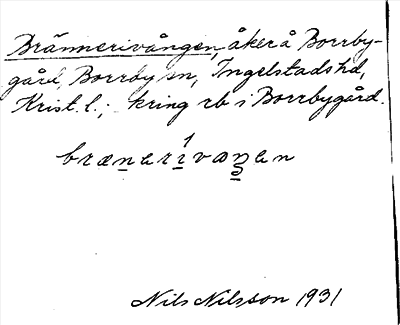 Brännerivången, åker å Borrby-
gård, Borrby sn, Ingelstads hd,
Krist. l.; kring rb i Borrbygård.
brænərivaŋən
Nils Nilsson 1931